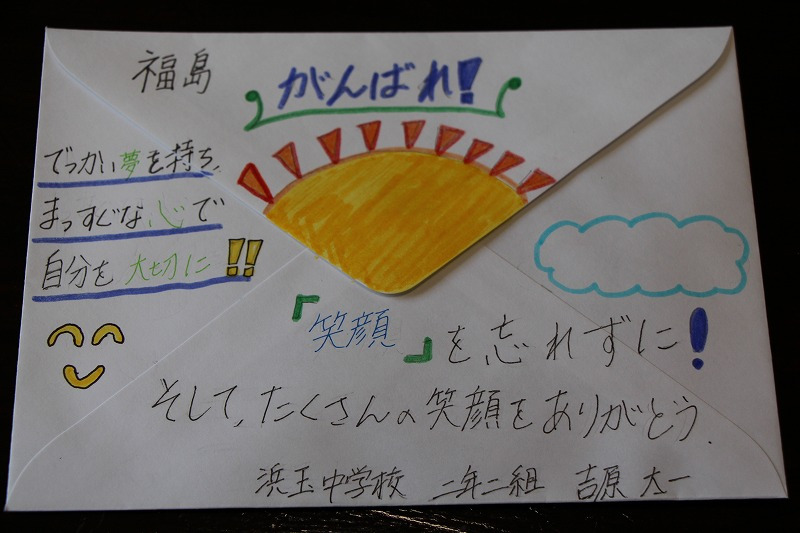 福島
がんばれ!
でっかい夢を持ち、
まっすぐな心で
自分を大切に!!
『笑顔』を忘れずに!
そして、たくさんの笑顔をありがとう.
浜玉中学校 二年二組 吉原 太一